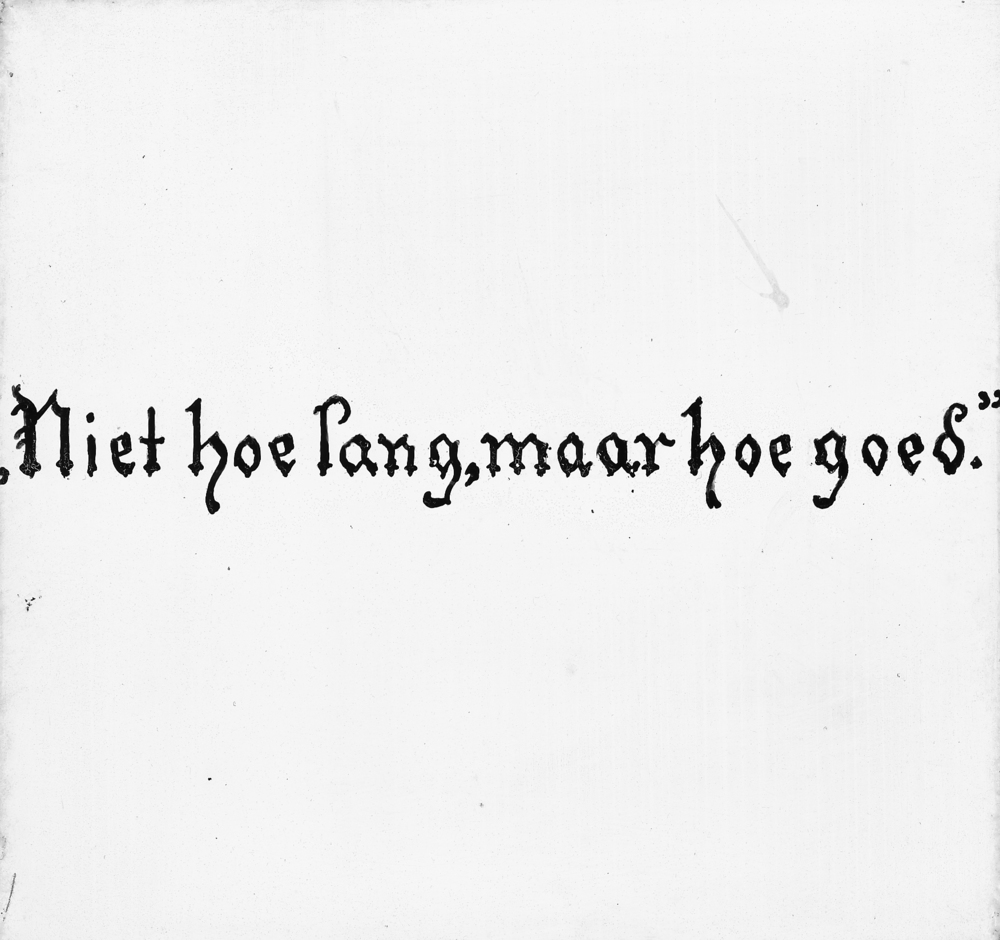 „Niet hoe lang, maar hoe goed.”